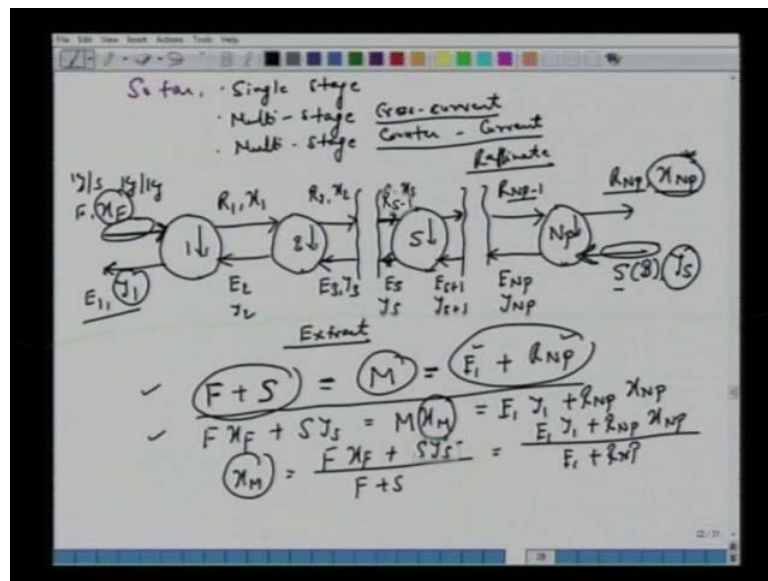 File Edit View Insert Actions Tools Help
So far, · Single stage
· Multi-stage Cross-current
· Multi-stage Counter-Current
Raffinate
kg/s kg/kg
F, x_F R_1, x_1 R_2, x_2 R_{S-1} R_{NP-1} R_{NP}, x_{NP}
1↓ 2↓ S↓ NP↓
E_1, y_1 E_2 E_3, y_3 E_S E_{S+1} E_{NP} S(B), y_S
y_2 y_S y_{S+1} y_{NP}
Extract
✓ F + S = M = E_1 + R_{NP}
✓ F x_F + S y_S = M x_M = E_1 y_1 + R_{NP} x_{NP}
x_M = F x_F + S y_S / F + S = E_1 y_1 + R_{NP} x_{NP} / E_1 + R_{NP}